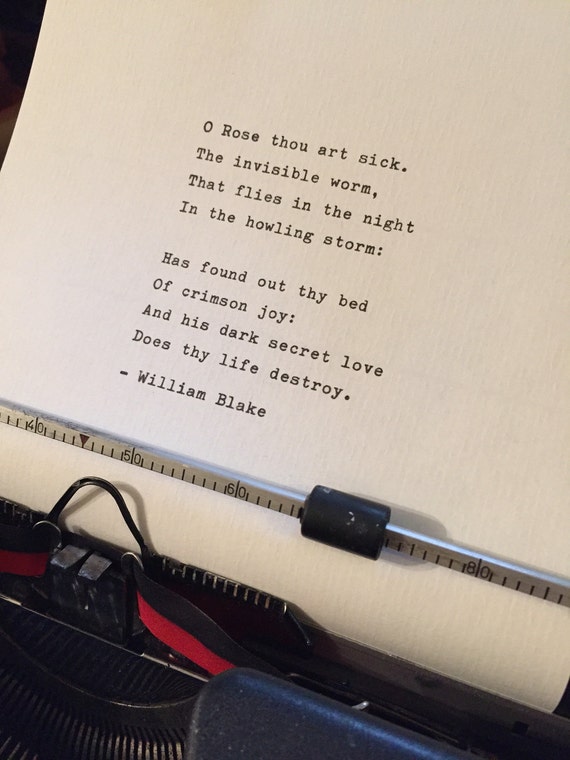 O Rose thou art sick.
The invisible worm,
That flies in the night
In the howling storm:
Has found out thy bed
Of crimson joy:
And his dark secret love
Does thy life destroy.
- William Blake
40 50 60 80